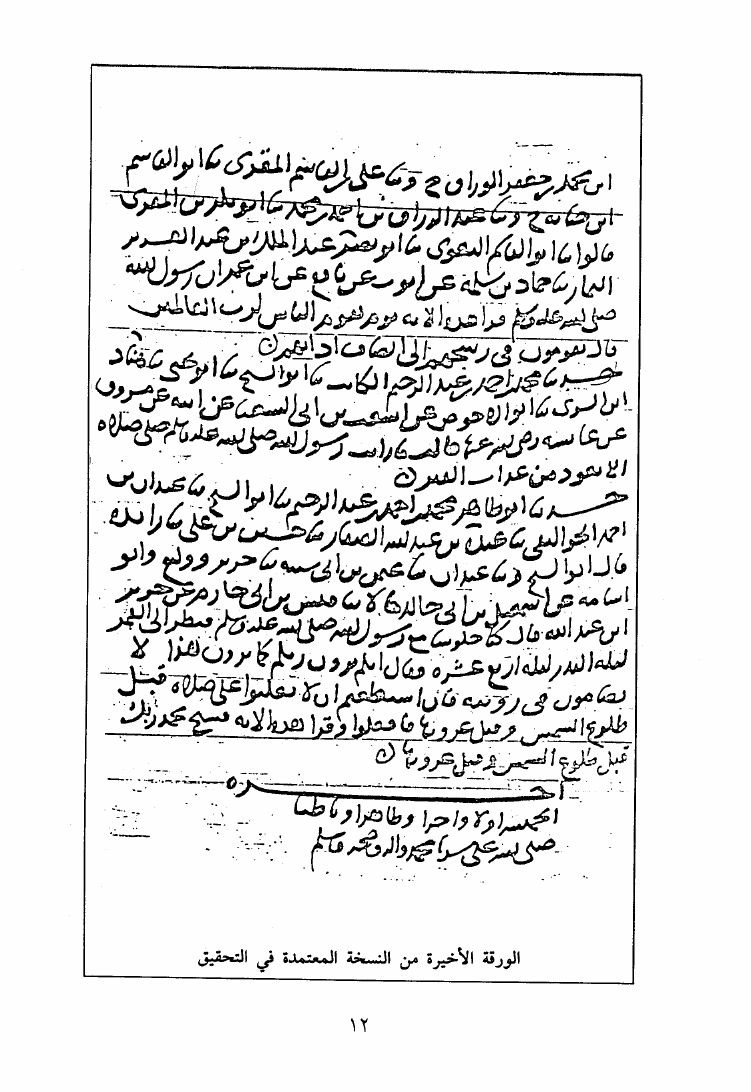 ابن محمد بن جعفر الوراق ح وسا على بن القاسم المقرى سا ابو القاسم
ابن حبابه ح وسا عبد الوراق بن احمد بن محمد سا ابو بكر بن المقرى
قالوا سا ابو القاسم البغوى سا ابو نصر عبد الملك بن عبد العزيز
التمار سا حماد بن سلمة عن ايوب عن نافع عن ابن عمر ان رسول الله
صلى الله عليه وسلم قرا هذه الايه يوم يقوم الناس لرب العالمين
قال يقومون فى رشحهم الى انصاف اذانهم
سا محمد بن احمد بن عبد الرحيم الكاتب سا ابو الشيخ سا ابو يحيى سا هناد
ابن السرى سا ابو الاحوص عن اشعث بن ابى الشعثا عن ابيه عن مسروق
عن عايشه رضى الله عنها قالت ما رايت رسول الله صلى الله عليه وسلم صلى صلاه
الا تعوذ من عذاب القبر
سا ابو طاهر محمد بن احمد بن عبد الرحيم سا ابو الشيخ سا عبدان بن
احمد الجواليقى سا عبدة بن عبد الله الصفار سا حسين بن على سا زائده
قال ابو الشيخ وسا عبدان سا عثمن بن ابى شيبه سا جرير ووكيع وابو
اسامه عن اسمعيل بن ابى خالد قالا سا قيس بن ابى حازم عن جرير
ابن عبد الله قال كنا جلوسا مع رسول الله صلى الله عليه وسلم فنظر الى القمر
ليله البدر ليله اربع عشره فقال انكم ترون ربكم كما ترون هذا لا
تضامون فى رويته فان استطعتم ان لا تغلبوا على صلاه قبل
طلوع الشمس وقبل غروبها فافعلوا وقرا هذه الايه فسبح بحمد ربك
قبل طلوع الشمس وقبل غروبها
اخره
الحمد لله اولا واخرا وظاهرا وباطنا
صلى الله على سيدنا محمد واله وصحبه وسلم
الورقة الأخيرة من النسخة المعتمدة في التحقيق
١٢